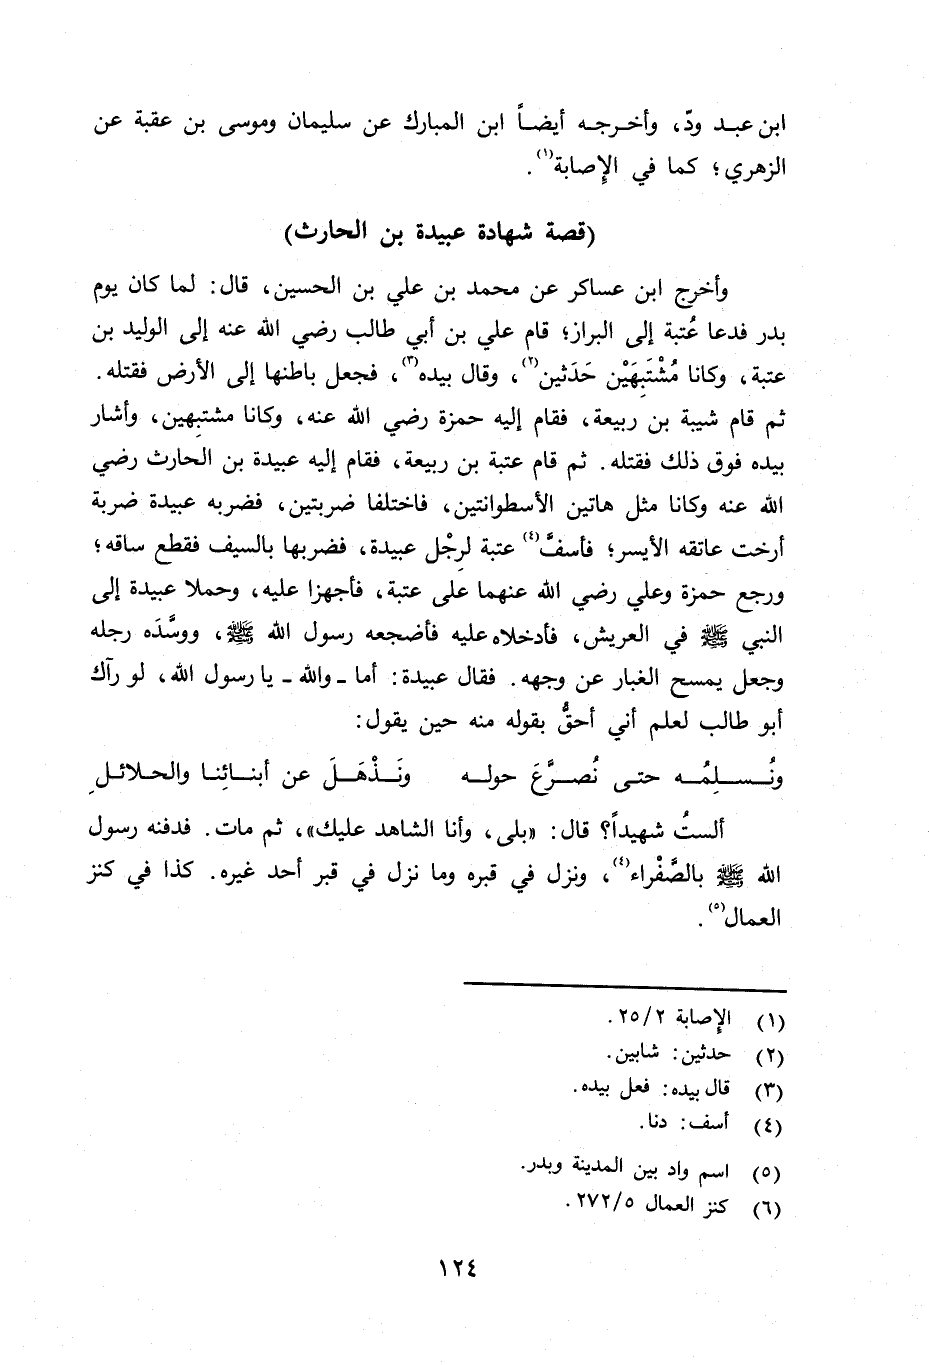 ابن عبـد ودّ، وأخـرجـه أيضـاً ابن المبارك عن سليمان وموسى بن عقبة عن
الزهري؛ كما في الإصابة(١).
(قصة شهادة عبيدة بن الحارث)
وأخرج ابن عساكر عن محمد بن علي بن الحسين، قال: لما كان يوم
بدر فدعا عُتبة إلى البراز؛ قام علي بن أبي طالب رضي الله عنه إلى الوليد بن
عتبة، وكانا مُشْتَبِهَيْن حَدَثين(٢)، وقال بيده(٣)، فجعل باطنها إلى الأرض فقتله.
ثم قام شيبة بن ربيعة، فقام إليه حمزة رضي الله عنه، وكانا مشتبِهين، وأشار
بيده فوق ذلك فقتله. ثم قام عتبة بن ربيعة، فقام إليه عبيدة بن الحارث رضي
الله عنه وكانا مثل هاتين الأسطوانتين، فاختلفا ضربتين، فضربه عبيدة ضربة
أرخت عاتقه الأيسر؛ فأسفَّ(٤) عتبة لرِجْل عبيدة، فضربها بالسيف فقطع ساقه؛
ورجع حمزة وعلي رضي الله عنهما على عتبة، فأجهزا عليه، وحملا عبيدة إلى
النبي ﷺ في العريش، فأدخلاه عليه فأضجعه رسول الله ﷺ، ووسَّدَه رجله
وجعل يمسح الغبار عن وجهه. فقال عبيدة: أما ـ والله ـ يا رسول الله، لو رآك
أبو طالب لعلم أني أحقُّ بقوله منه حين يقول:
ونُـسـلِمُـه حتـى نُصـرَّعَ حولـه ونَـذْهَـلَ عن أبنـائِنـا والحـلائـلِ
ألستُ شهيداً؟ قال: «بلى، وأنا الشاهد عليك»، ثم مات. فدفنه رسول
الله ﷺ بالصَّفْراء(٤)، ونزل في قبره وما نزل في قبر أحد غيره. كذا في كنز
العمال(٥).
(١) الإصابة ٢٥/٢.
(٢) حدثين: شابين.
(٣) قال بيده: فعل بيده.
(٤) أسف: دنا.
(٥) اسم واد بين المدينة وبدر.
(٦) كنز العمال ٢٧٢/٥.
١٢٤